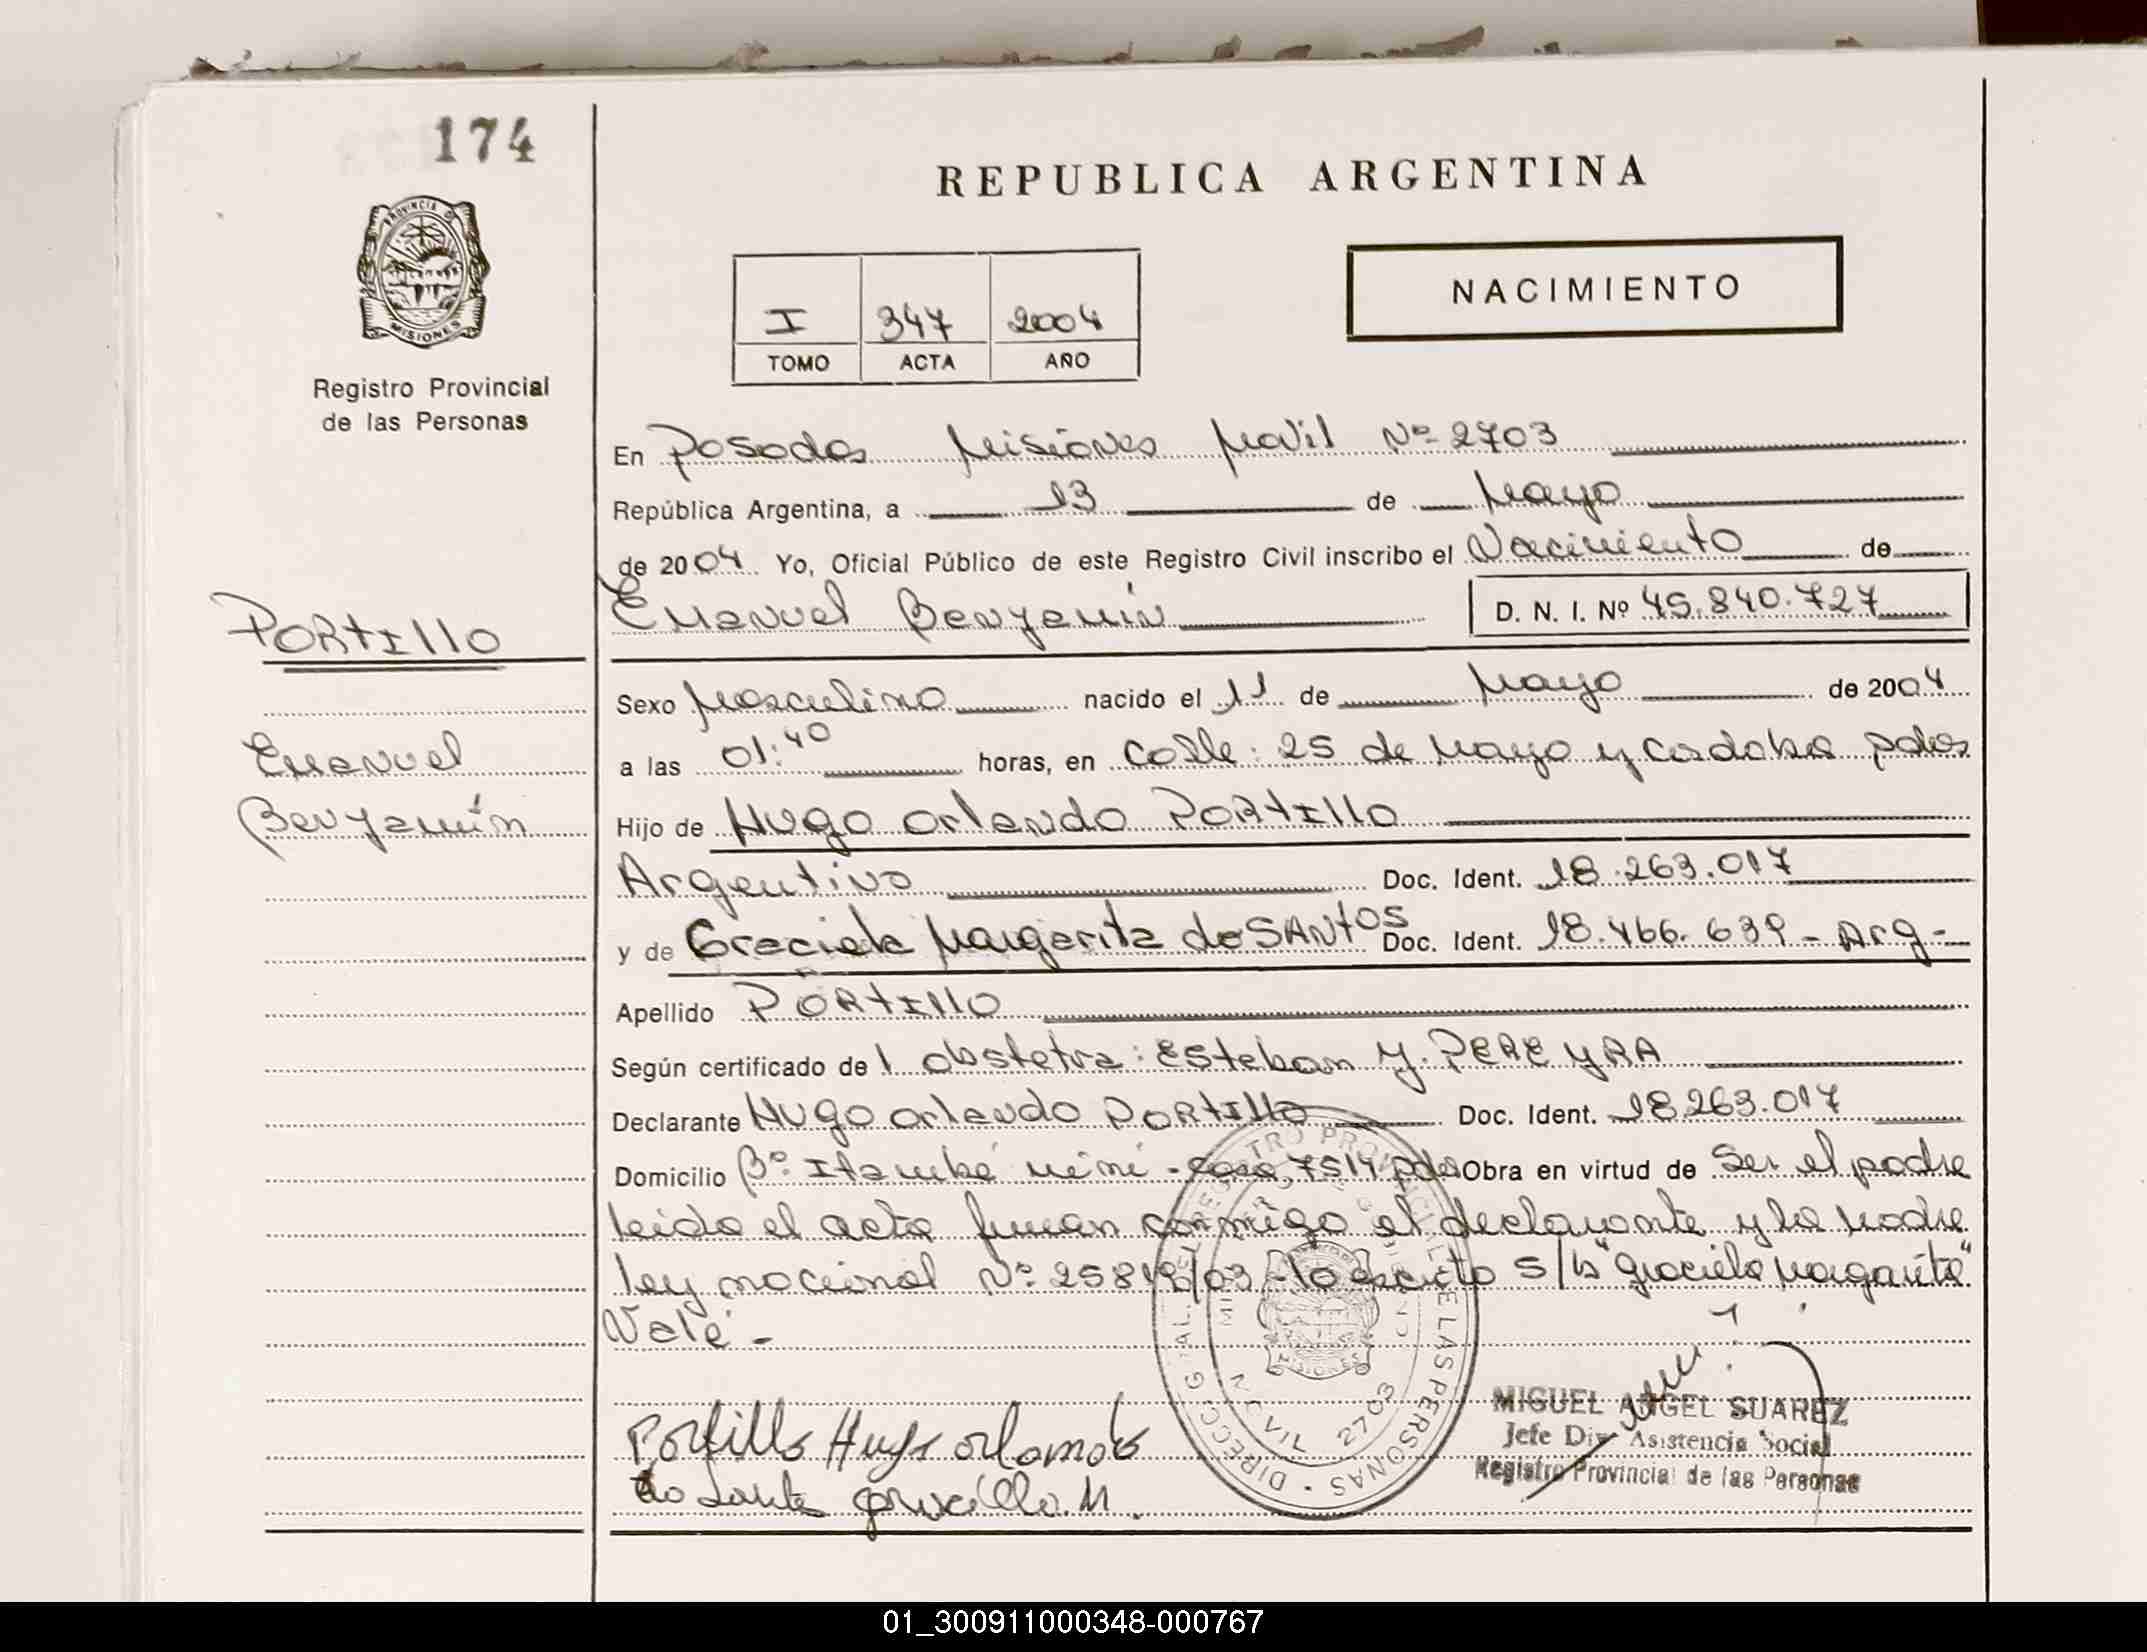 174
PROVINCIA DE
MISIONES
Registro Provincial
de las Personas
REPUBLICA ARGENTINA
I 347 2004
TOMO ACTA AÑO
NACIMIENTO
En Posadas Misiones Movil Nº 2703
República Argentina, a 13 de Mayo
de 2004 Yo, Oficial Público de este Registro Civil inscribo el Nacimiento de
Emanuel Benyamín D. N. I. Nº 45.840.727
PORTILLO
Emanuel
Benyamín
Sexo Masculino nacido el 11 de Mayo de 2004
a las 01:40 horas, en Calle: 25 de Mayo y Cordoba pdas
Hijo de Hugo Orlando PORTILLO
Argentino Doc. Ident. 18.263.017
y de Graciela Margarita do SANTOS Doc. Ident. 18.466.639 - Arg -
Apellido PORTILLO
Según certificado de l obstetra: Esteban Y. PEREYRA
Declarante Hugo Orlando PORTILLO Doc. Ident. 18.263.017
Domicilio Bº Itambé mini - casa 7514 pdas Obra en virtud de Ser el padre
leido el acta firman conmigo el declarante y la madre
ley nacional Nº 25819/03 - lo escrito s/b "graciela margarita"
Vale -
DIRECC. GRAL. DEL REGISTRO PROVINCIAL DE LAS PERSONAS
MISIONES
MOVIL 2703
Portillo Hugo orlando
do Santos graciela. M.
MIGUEL ANGEL SUAREZ
Jefe Div Asistencia Social
Registro Provincial de las Personas
01_300911000348-000767